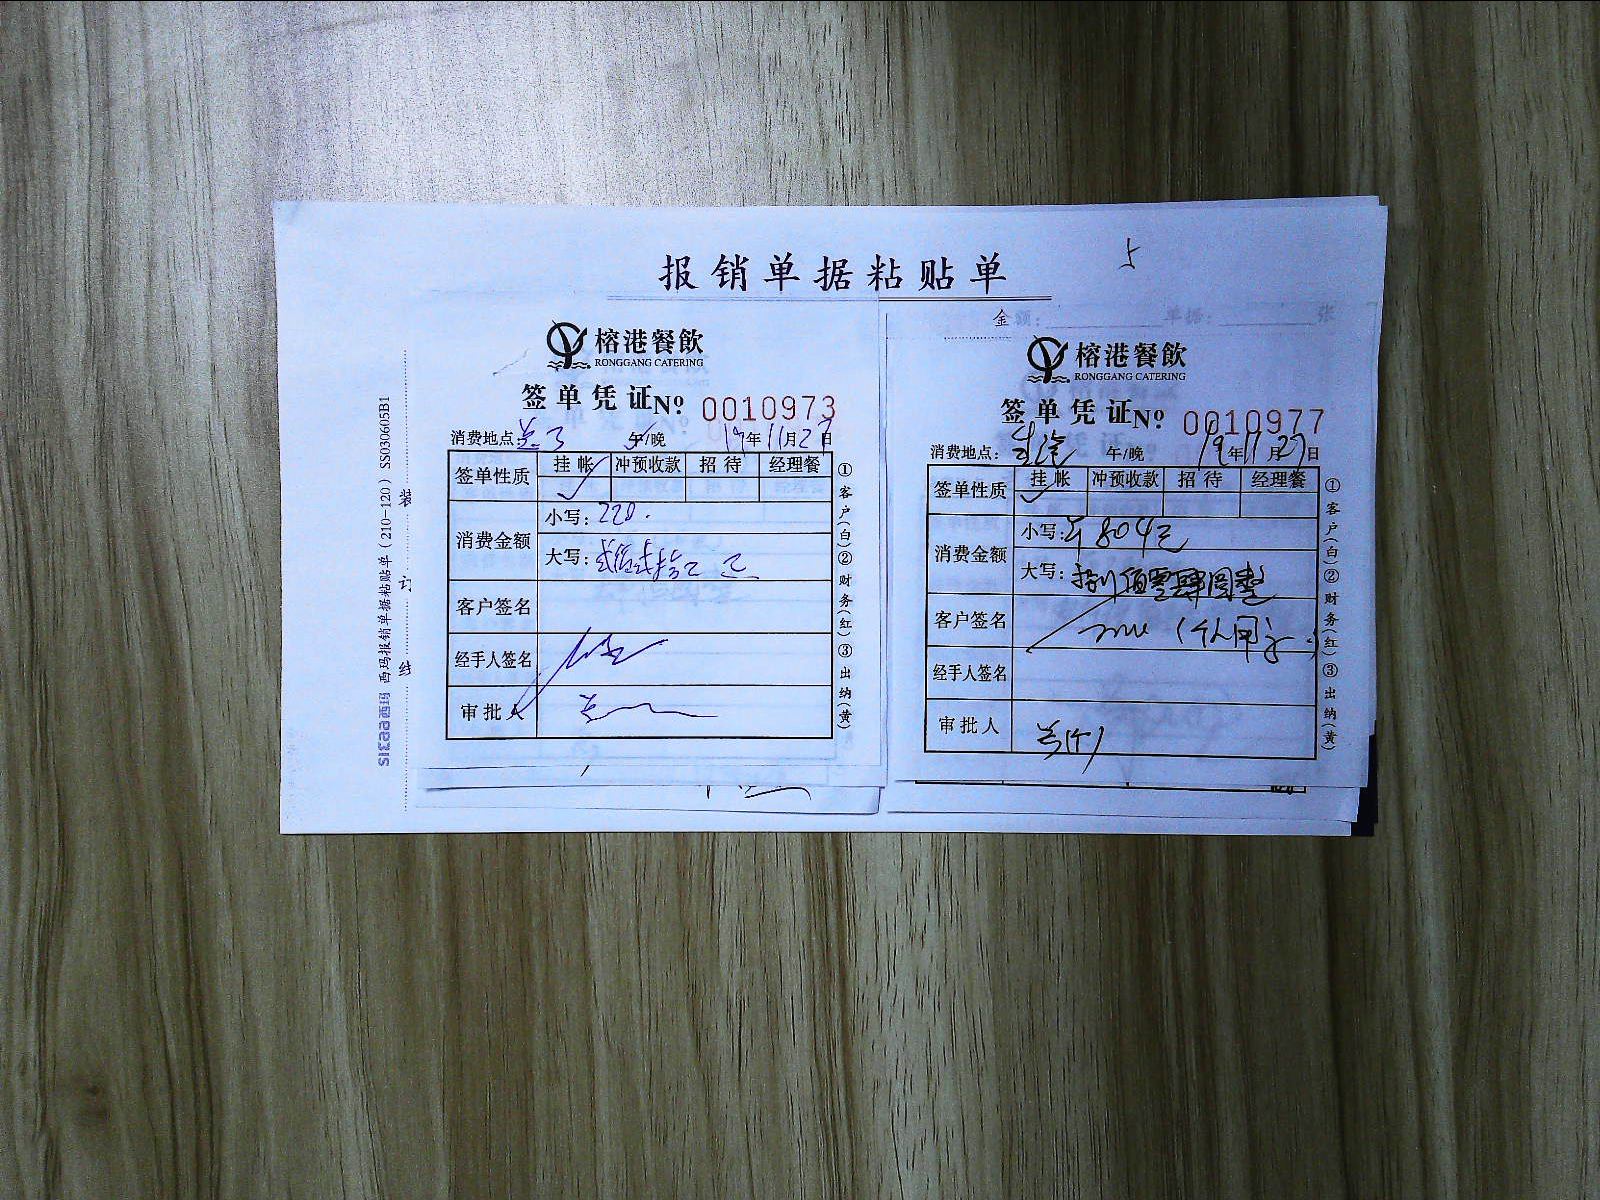 报销单据粘贴单
5
金额: 单据: 张
装 订 线
西玛报销单据粘贴单(210-120) SS030605B1
西玛
榕港餐飲
RONGGANG CATERING
签单凭证 No 0010973
消费地点: 午/晚 19年11月27日
签单性质 挂帐 冲预收款 招待 经理餐
✓
消费金额 小写: 220.
大写: 贰佰贰拾元 正
客户签名
经手人签名
审批人
①客户(白)②财务(红)③出纳(黄)
榕港餐飲
RONGGANG CATERING
签单凭证 No 0010977
消费地点: 午/晚 19年11月27日
签单性质 挂帐 冲预收款 招待 经理餐
✓
消费金额 小写: 804元
大写: 捌佰零肆圆整
客户签名
经手人签名
审批人
①客户(白)②财务(红)③出纳(黄)